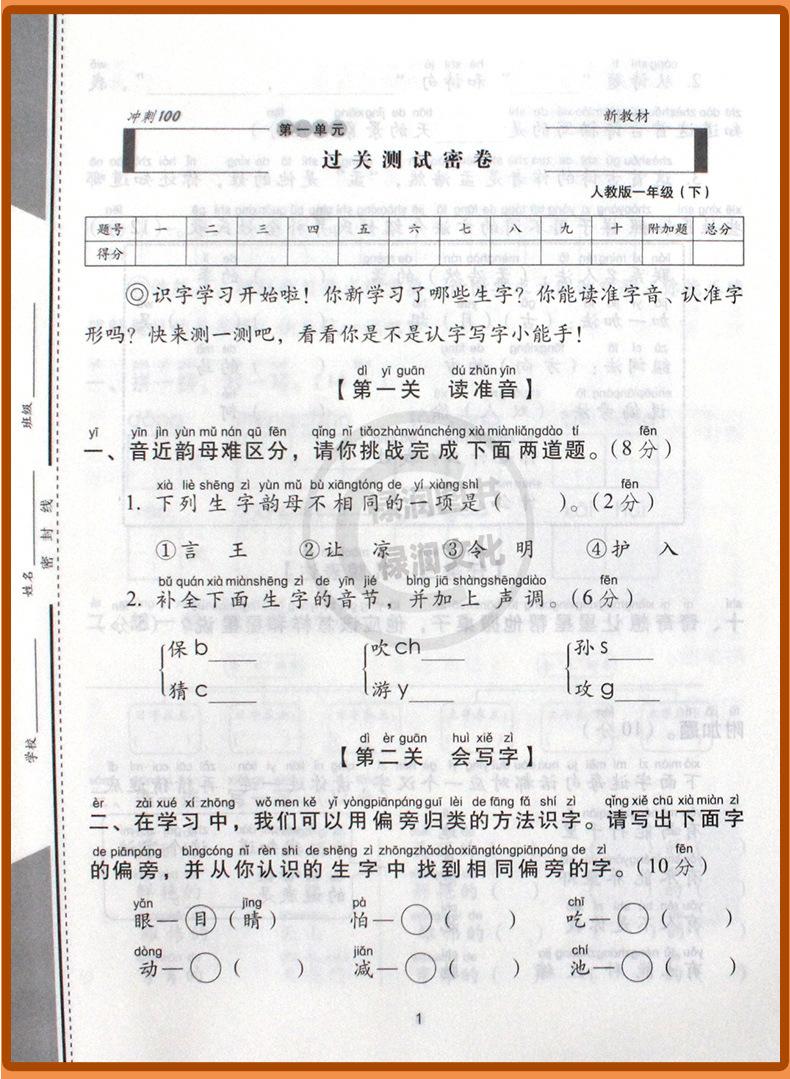 冲刺100
第一单元
新教材
过关测试密卷
人教版一年级(下)
题号 一 二 三 四 五 六 七 八 九 十 附加题 总分
得分
◎识字学习开始啦!你新学习了哪些生字?你能读准字音、认准字
形吗?快来测一测吧,看看你是不是认字写字小能手!
dì yī guān dú zhǔn yīn
【第一关 读准音】
yī yīn jìn yùn mǔ nán qū fēn qǐng nǐ tiǎo zhàn wán chéng xià miàn liǎng dào tí
一、音近韵母难区分,请你挑战完成下面两道题。(8分)
xià liè shēng zì yùn mǔ bù xiāng tóng de yí xiàng shì fēn
1. 下列生字韵母不相同的一项是( )。(2分)
①言 王 ②让 凉 ③令 明 ④护 入
bǔ quán xià miàn shēng zì de yīn jié bìng jiā shàng shēng diào fēn
2. 补全下面生字的音节,并加上声调。(6分)
保 b____ 吹 ch____ 孙 s____
猜 c____ 游 y____ 攻 g____
dì èr guān huì xiě zì
【第二关 会写字】
èr zài xué xí zhōng wǒ men kě yǐ yòng piān páng guī lèi de fāng fǎ shí zì qǐng xiě chū xià miàn zì
二、在学习中,我们可以用偏旁归类的方法识字。请写出下面字
de piān páng bìng cóng nǐ rèn shi de shēng zì zhōng zhǎo dào xiāng tóng piān páng de zì fēn
的偏旁,并从你认识的生字中找到相同偏旁的字。(10分)
yǎn jīng pà chī
眼—目(晴) 怕—○( ) 吃—○( )
dòng jiǎn chí
动—○( ) 减—○( ) 池—○( )
1
学校
姓名
班级
密封线
禄润图书
禄润文化